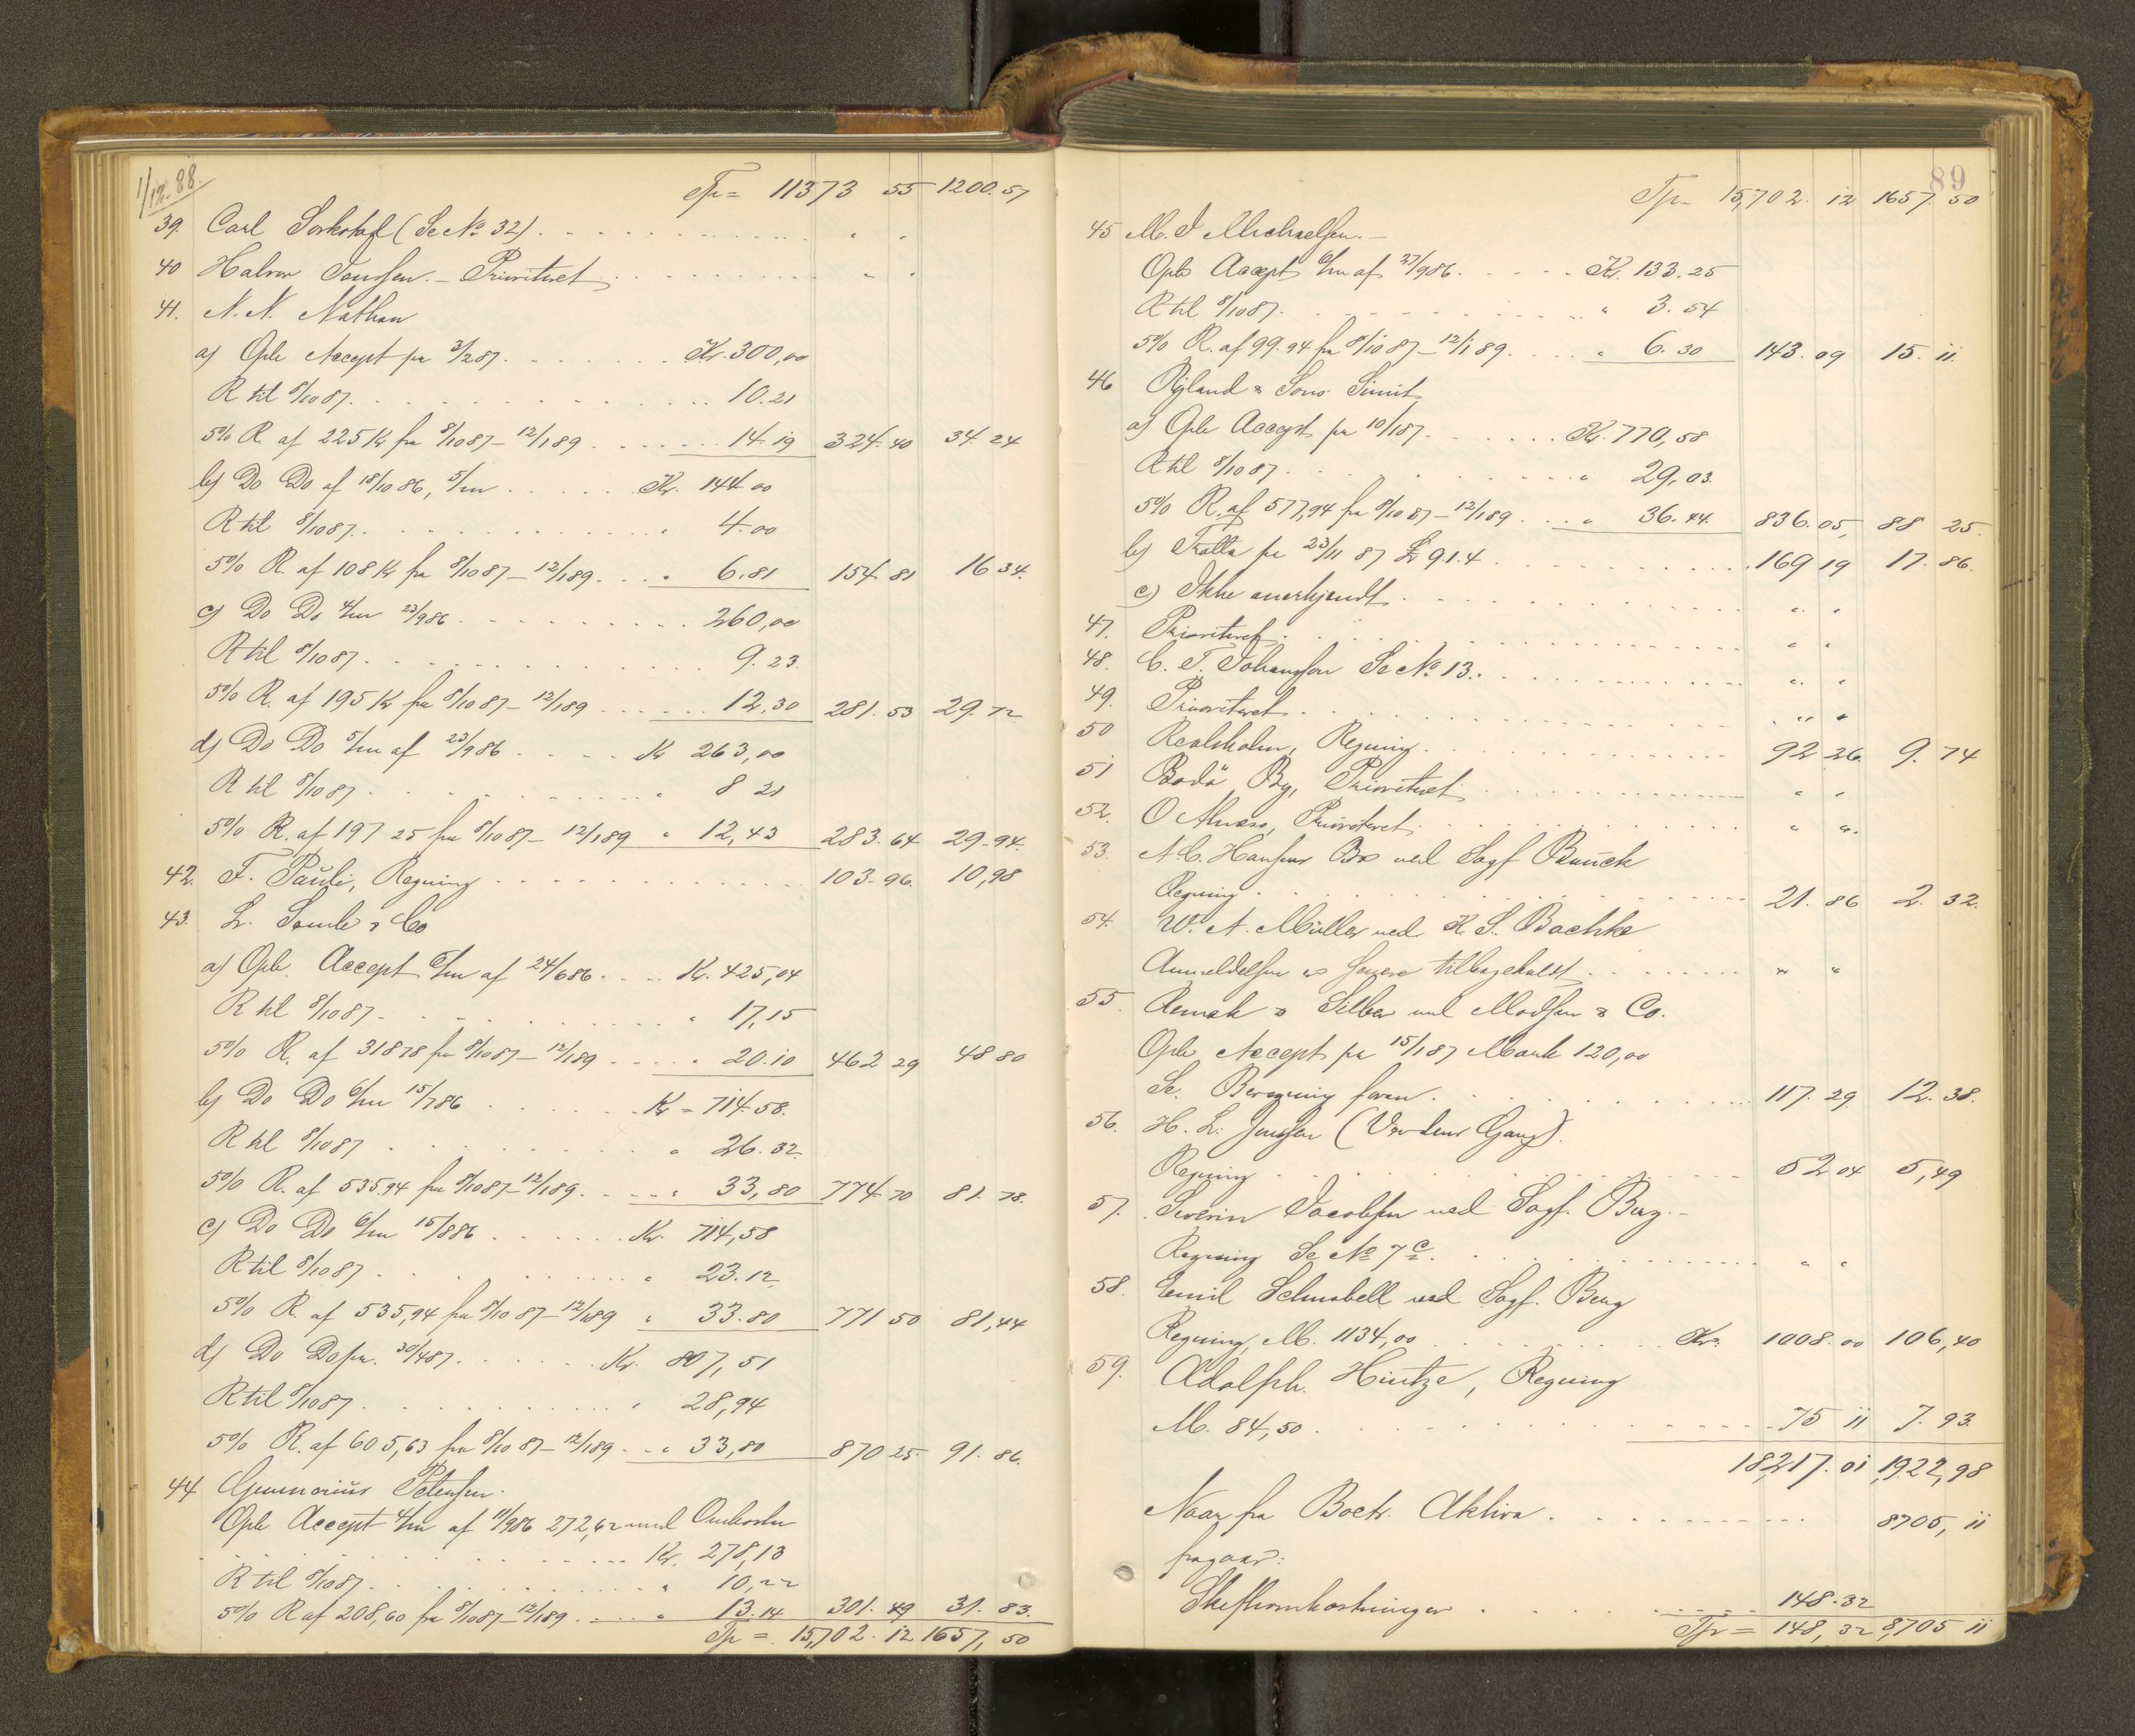 1/12.88.
Tr = 11373 55 1200.57
39. Carl (Se No 32)
40 Halvor Tonssen. - Prioriteret
41. N. N. Nathan
a) Opb Accept pr 3/2 87. Kr. 300,00
R til 8/10 87. 10.21
5% R. af 225 Kr fra 8/10 87 - 12/1 89 14.19 324.40 34.24
b) Do Do af 18/10 86, 5/m Kr. 144.00
R til 8/10 87. " 4.00
5% R. af 108 Kr fra 8/10 87 - 12/1 89. " 6.81 154 81 16 34.
c) Do Do 4/m 23/9 86 260,00
R til 8/10 87. 9.23.
5% R. af 195 Kr fra 8/10 87 - 12/1 89 12.30 281.53 29.72
d) Do Do 5/m af 23/9 86 Kr 263,00
R til 8/10 87 " 8 21
5% R. af 197 25 fra 8/10 87 - 12/1 89 " 12,43 283.64 29.94.
42. F. Pauli, Regning 103.96. 10,98
43. L. & Co
a) Opb. Accept 6/m af 24/6 86. Kr. 425,04
R til 8/10 87. " 17,15
5% R. af 318 78 fra 8/10 87 - 12/1 89 " 20.10 462 29 48 80
b) Do Do 6/m 15/7 86 Kr = 714.58.
R til 8/10 87 " 26.32.
5% R. af 535.94 fra 8/10 87 - 12/1 89. " 33,80 774.70 81.78.
c) Do Do 6/m 15/8 86 Kr. 714,58
R til 8/10 87 " 23.12
5% R. af 535,94 fra 8/10 87 - 12/1 89 " 33.80 771 50 81,44
d) Do Do pr. 30/4 87. Kr. 807,51
R til 8/10 87. " 28,94
5% R. af 605,63 fra 8/10 87 - 12/1 89. " 33,80 870 25. 91.86.
44 Gunnerius Petersen.
Opb Accept 4/m af 11/9 86 272,62 med Omkostn
Kr. 278,13
R til 8/10 87. " 10,22
5% R af 208,60 fra 8/10 87 - 12/1 89. " 13.14 301.49 31.83.
Tr = 15,702.12 1657,50
89
Tr = 15,702.12 1657.50
45 M. I Michaelsen. -
Opb Accept 6/m af 27/9 86. Kr. 133.25
R til 8/10 87. " 3.54
5% R. af 99.94 fra 8/10 87 - 12/1 89. " 6.30 143.09 15.11.
46 Ryland & Sons Limit
a) Opb Accept pr 10/1 87. Kr. 770,58
R til 8/10 87. " 29,03.
5% R. af 577,94 fra 8/10 87 - 12/1 89. " 36.44. 836.05, 88 25.
b) Tratta pr 23/11 87 £ 9.1.4 169 19 17.86.
c) Ikke anerkjendt " "
47. Prioriteret " "
48. C. F. Johanssen Se No 13. " "
49. Prioriteret " "
50 Realskolen, Regning 92 26. 9.74
51 Bodö By, Prioriteret " "
52. O , Prioriteret " "
53. A. C. Hansens Bo ved Sagf Bauck
Regning 21.86 2.32.
54. W. A. Müller ved K. S. Bachke
Anmeldelsen er senere tilbagekaldt " "
55 & Silber ved Madsen & Co.
Opb Accept pr 15/1 87 Mark 120,00
Se. Beregning foran. 117.29 12.38.
56. H. L. Jenssen (Verdens Gang).
Regning 52 04 5,49
57. Severin Jacobsen ved Sagf. Berg. -
Regning Se No 7 c. " "
58. Emil Schnabell ved Sagf. Berg
Regning, M. 1134,00 Kr. 1008.00 106,40
59. Adolph Hintze, Regning
M. 84,50 75 11 7.93.
18,217.01 1,922,98
Naar fra Boets Aktiva 8705,11
fragaar:
Skifteomkostninger 148.32
Tr = 148,32 8,705 11